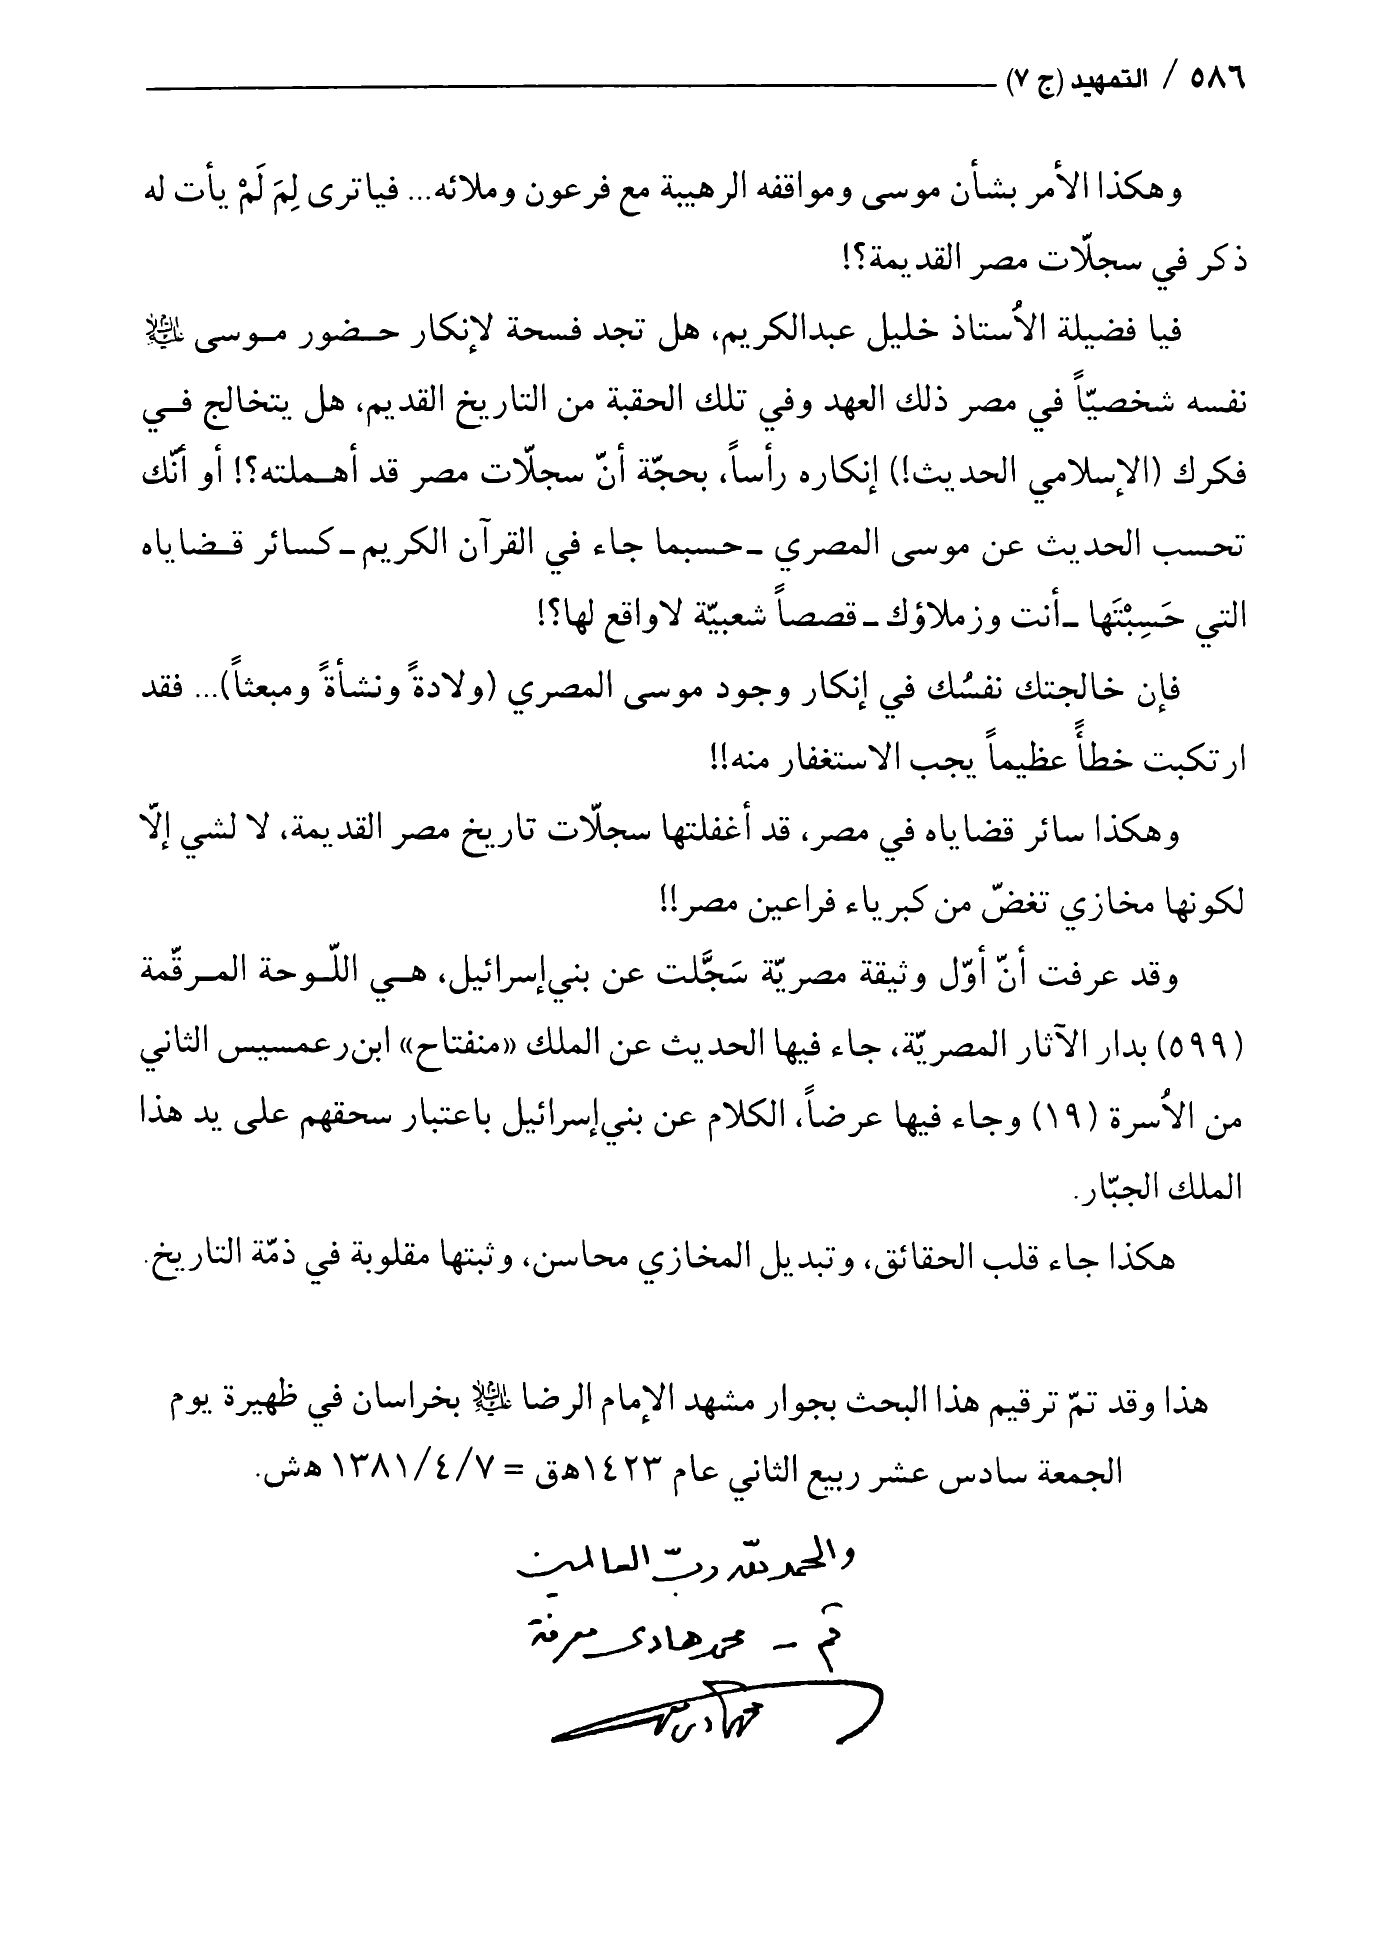 ٥٨٦ / التمهيد (ج ٧)
وهكذا الأمر بشأن موسى ومواقفه الرهيبة مع فرعون وملائه... فياترى لِمَ لَمْ يأت له
ذكر في سجلّات مصر القديمة؟!
فيا فضيلة الأُستاذ خليل عبدالكريم، هل تجد فسحة لإنكار حضور موسى عليه السلام
نفسه شخصيّاً في مصر ذلك العهد وفي تلك الحقبة من التاريخ القديم، هل يتخالج في
فكرك (الإسلامي الحديث!) إنكاره رأساً، بحجّة أنّ سجلّات مصر قد أهملته؟! أو أنّك
تحسب الحديث عن موسى المصري ـ حسبما جاء في القرآن الكريم ـ كسائر قضاياه
التي حَسِبْتَها ـ أنت وزملاؤك ـ قصصاً شعبيّة لاواقع لها؟!
فإن خالجتك نفسُك في إنكار وجود موسى المصري (ولادةً ونشأةً ومبعثاً)... فقد
ارتكبت خطأً عظيماً يجب الاستغفار منه!!
وهكذا سائر قضاياه في مصر، قد أغفلتها سجلّات تاريخ مصر القديمة، لا لشي إلّا
لكونها مخازي تغضّ من كبرياء فراعين مصر!!
وقد عرفت أنّ أوّل وثيقة مصريّة سَجَّلت عن بني‌إسرائيل، هي اللّوحة المرقّمة
(٥٩٩) بدار الآثار المصريّة، جاء فيها الحديث عن الملك «منفتاح» ابن‌رعمسيس الثاني
من الأُسرة (١٩) وجاء فيها عرضاً، الكلام عن بني‌إسرائيل باعتبار سحقهم على يد هذا
الملك الجبّار.
هكذا جاء قلب الحقائق، وتبديل المخازي محاسن، وثبتها مقلوبة في ذمّة التاريخ.
هذا وقد تمّ ترقيم هذا البحث بجوار مشهد الإمام الرضا عليه السلام بخراسان في ظهيرة يوم
الجمعة سادس عشر ربيع الثاني عام ١٤٢٣هـق = ١٣٨١/٤/٧ هـش.
والحمد لله رب العالمين
قم ـ محمد هادى معرفة